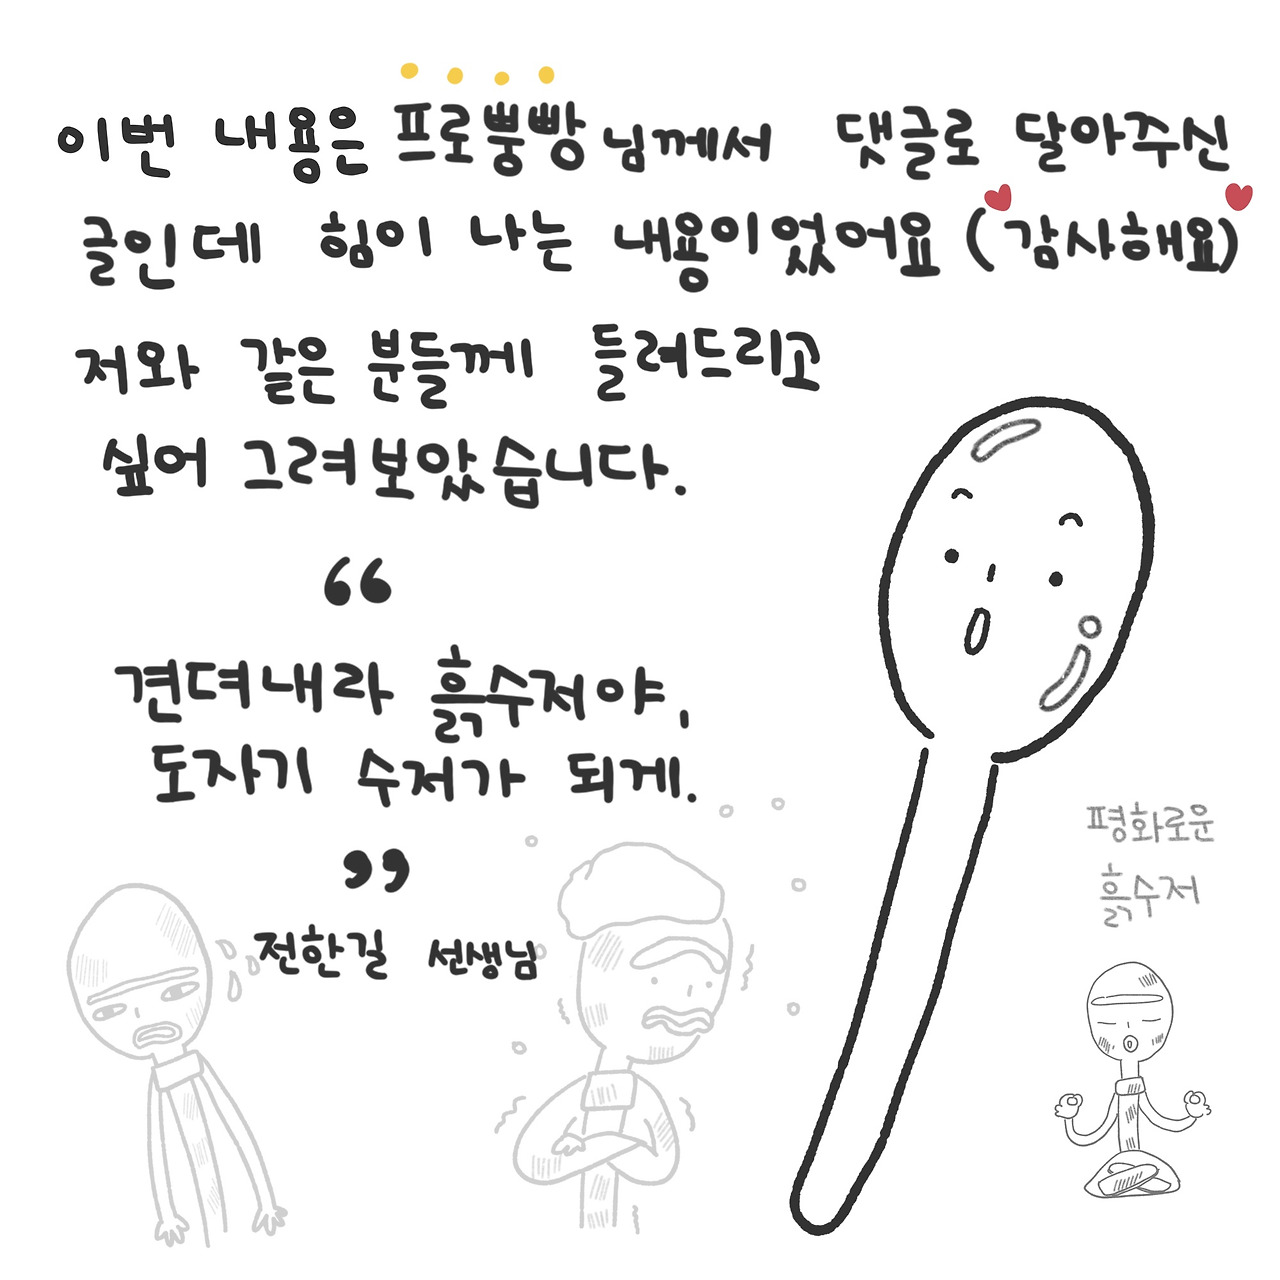 이번 내용은 프로뿡빵님께서 댓글로 달아주신
글인데 힘이 나는 내용이었어요 (감사해요)
저와 같은 분들께 들려드리고
싶어 그려보았습니다.
“
견뎌내라 흙수저야,
도자기 수저가 되게.
”
전한길 선생님
평화로운
흙수저